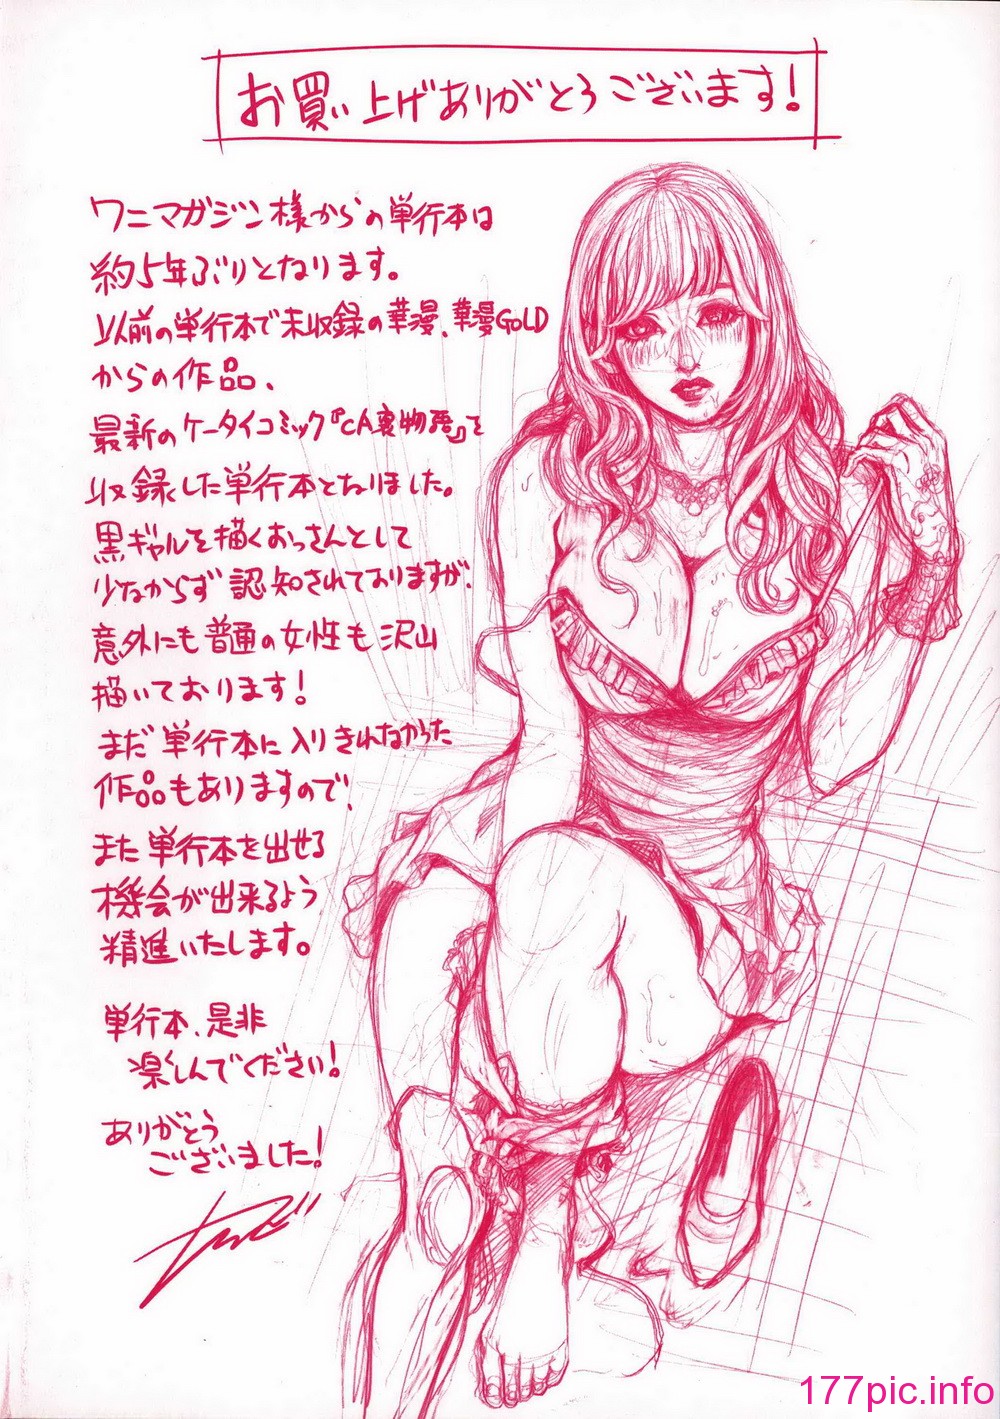 お買い上げありがとうございます!
ワニマガジン様からの単行本は
約5年ぶりとなります。
以前の単行本で未収録の華漫、華漫GOLD
からの作品、
最新のケータイコミック『CA裏物語』を
収録した単行本となりました。
黒ギャルを描くおっさんとして
少なからず認知されておりますが、
意外にも普通の女性も沢山
描いております!
まだ単行本に入りきれなかった
作品もありますので、
また単行本を出せる
機会が出来るよう
精進いたします。
単行本、是非
楽しんでください!
ありがとう
ございました!
177pic.info